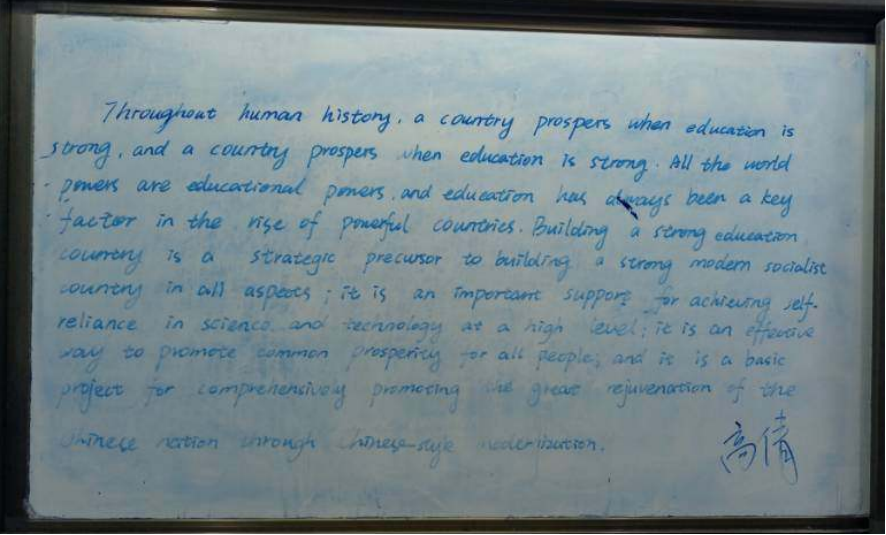 Throughout human history, a country prospers when education is
strong, and a country prospers when education is strong. All the world
powers are educational powers, and education has always been a key
factor in the rise of powerful countries. Building a strong education
country is a strategic precursor to building a strong modern socialist
country in all aspects; it is an important support for achieving self-
reliance in science and technology at a high level; it is an effective
way to promote common prosperity for all people; and it is a basic
project for comprehensively promoting the great rejuvenation of the
Chinese nation through Chinese-style
高倩